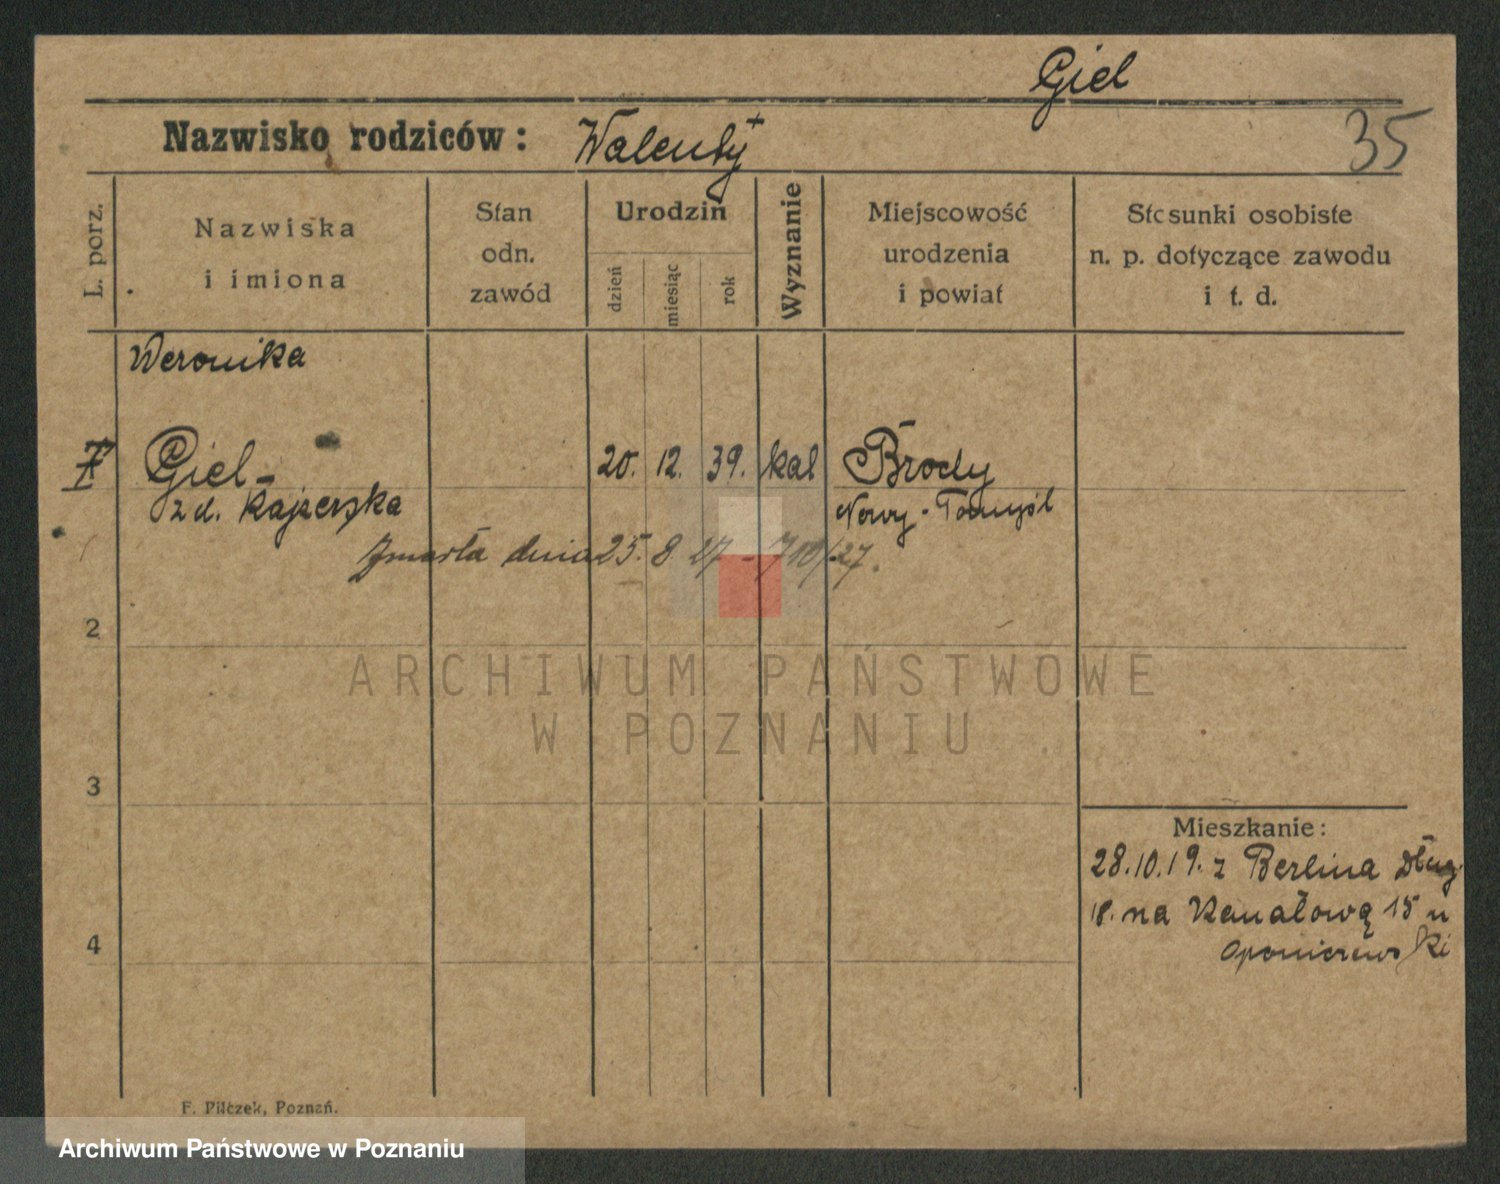 Giel
35
Nazwisko rodziców: Walenty +
L. porz.
Nazwiska
i imiona
Stan
odn.
zawód
Urodzin
dzień
miesiąc
rok
Wyznanie
Miejscowość
urodzenia
i powiat
Stosunki osobiste
n. p. dotyczące zawodu
i t. d.
Weronika
Giel - 20. 12. 39. kat Brody
z d. Kajzerska Nowy-Tomyśl
Zmarła dnia 25. 8. 27 - /27.
2
3
4
ARCHIWUM PAŃSTWOWE
W POZNANIU
Mieszkanie:
28.10.19. z Berlina Dług.
18. na Kanałową 15 u
Oponiczewski
F. Pilczek, Poznań.
Archiwum Państwowe w Poznaniu